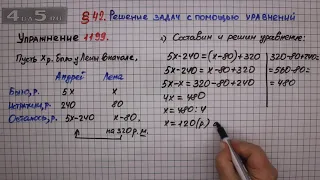 4as5.com
§ 42. Решение задач с помощью уравнений
Упражнение 1199.
Пусть х р. было у Лены вначале,
Андрей Лена
Было, р. 5х х
Истратили, р. 240 80
Осталось, р. 5х-240 х-80,
на 320 р. м.
1) Составим и решим уравнение:
5х-240=(х-80)+320
5х-240=х-80+320
5х-х=320-80+240
4х=480
х=480:4
х=120(р.)
320-80+240=
=560-80=
=480